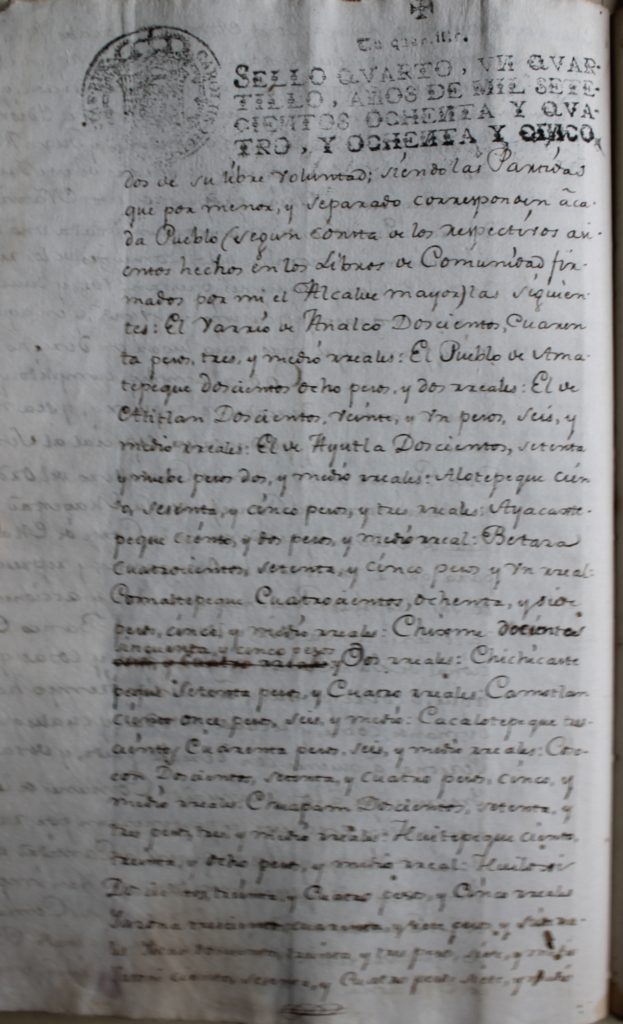 Un quartillo.
SELLO QVARTO, VN QVAR-
TILLO, AÑOS DE MIL SETE-
CIENTOS OCHENTA Y QVA-
TRO, Y OCHENTA Y CINCO.
dos de su libre voluntad; siendo las Partidas
que por menor, y separado corresponden à ca
da Pueblo (segun consta de los respectivos asi
entos hechos en los Libros de Comunidad fir-
mados por mi el Alcalde mayor) las siguien-
tes: El Varrio de Analco Doscientos, Cuaren
ta pesos, tres, y medio rreales: El Pueblo de Ama-
tepeque doscientos ocho pesos, y dos rreales: El de
Otitlan Doscientos, veinte, y Vn pesos, seis, y
medio rreales: El de Ayutla Doscientos, setenta
y nuebe pesos dos, y medio rreales: Alotepeque cien
to, sesenta, y cinco pesos, y tres rreales: Ayacaste-
peque ciento, y dos pesos, y medio rreal: Betaza
Cuatrocientos, setenta, y cinco pesos y Vn rreal:
Comaltepeque Cuatrocientos, ochenta, y siete
pesos, cinco, y medio rreales: Chixome docientos
cincuenta, y cinco pesos
y Dos rreales: Chichicaste
peque setenta pesos, y Cuatro rreales: Camotlan
ciento once pesos, seis, y medio: Cacalotepeque tres-
cientos Cuarenta pesos, seis, y medio rreales: Coc-
con Doscientos, setenta, y cuatro pesos, cinco, y
medio rreales: Chuapam Doscientos, setenta, y
tres pesos, tres y medio rreales: Huitepeque ciento,
treinta, y ocho pesos, y medio rreal:
Doscientos, treinta, y Cuatro pesos, y Cinco rreales
trescientos cuarenta, y siete pesos, y seis rea-
les treinta, y tres pesos, siete, y medio
sesenta, y Cuatro pesos siete, y medio